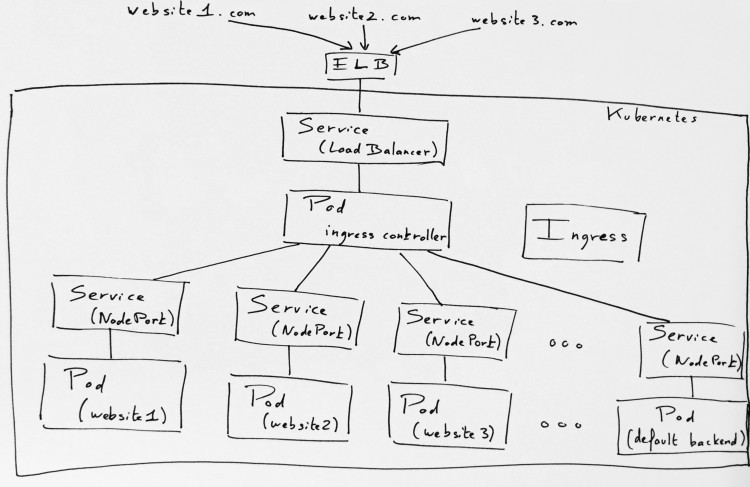 website1.com
website2.com
website3.com
ELB
Kubernetes
Service
(Load Balancer)
Pod
ingress controller
Ingress
Service
(NodePort)
Service
(NodePort)
Service
(NodePort)
Service
(NodePort)
ooo
Pod
(website1)
Pod
(website2)
Pod
(website3)
ooo
Pod
(default backend)